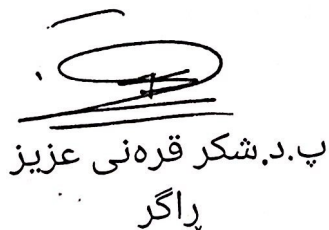 پ.د.شكر قرەنى عزيز
ڕاگر